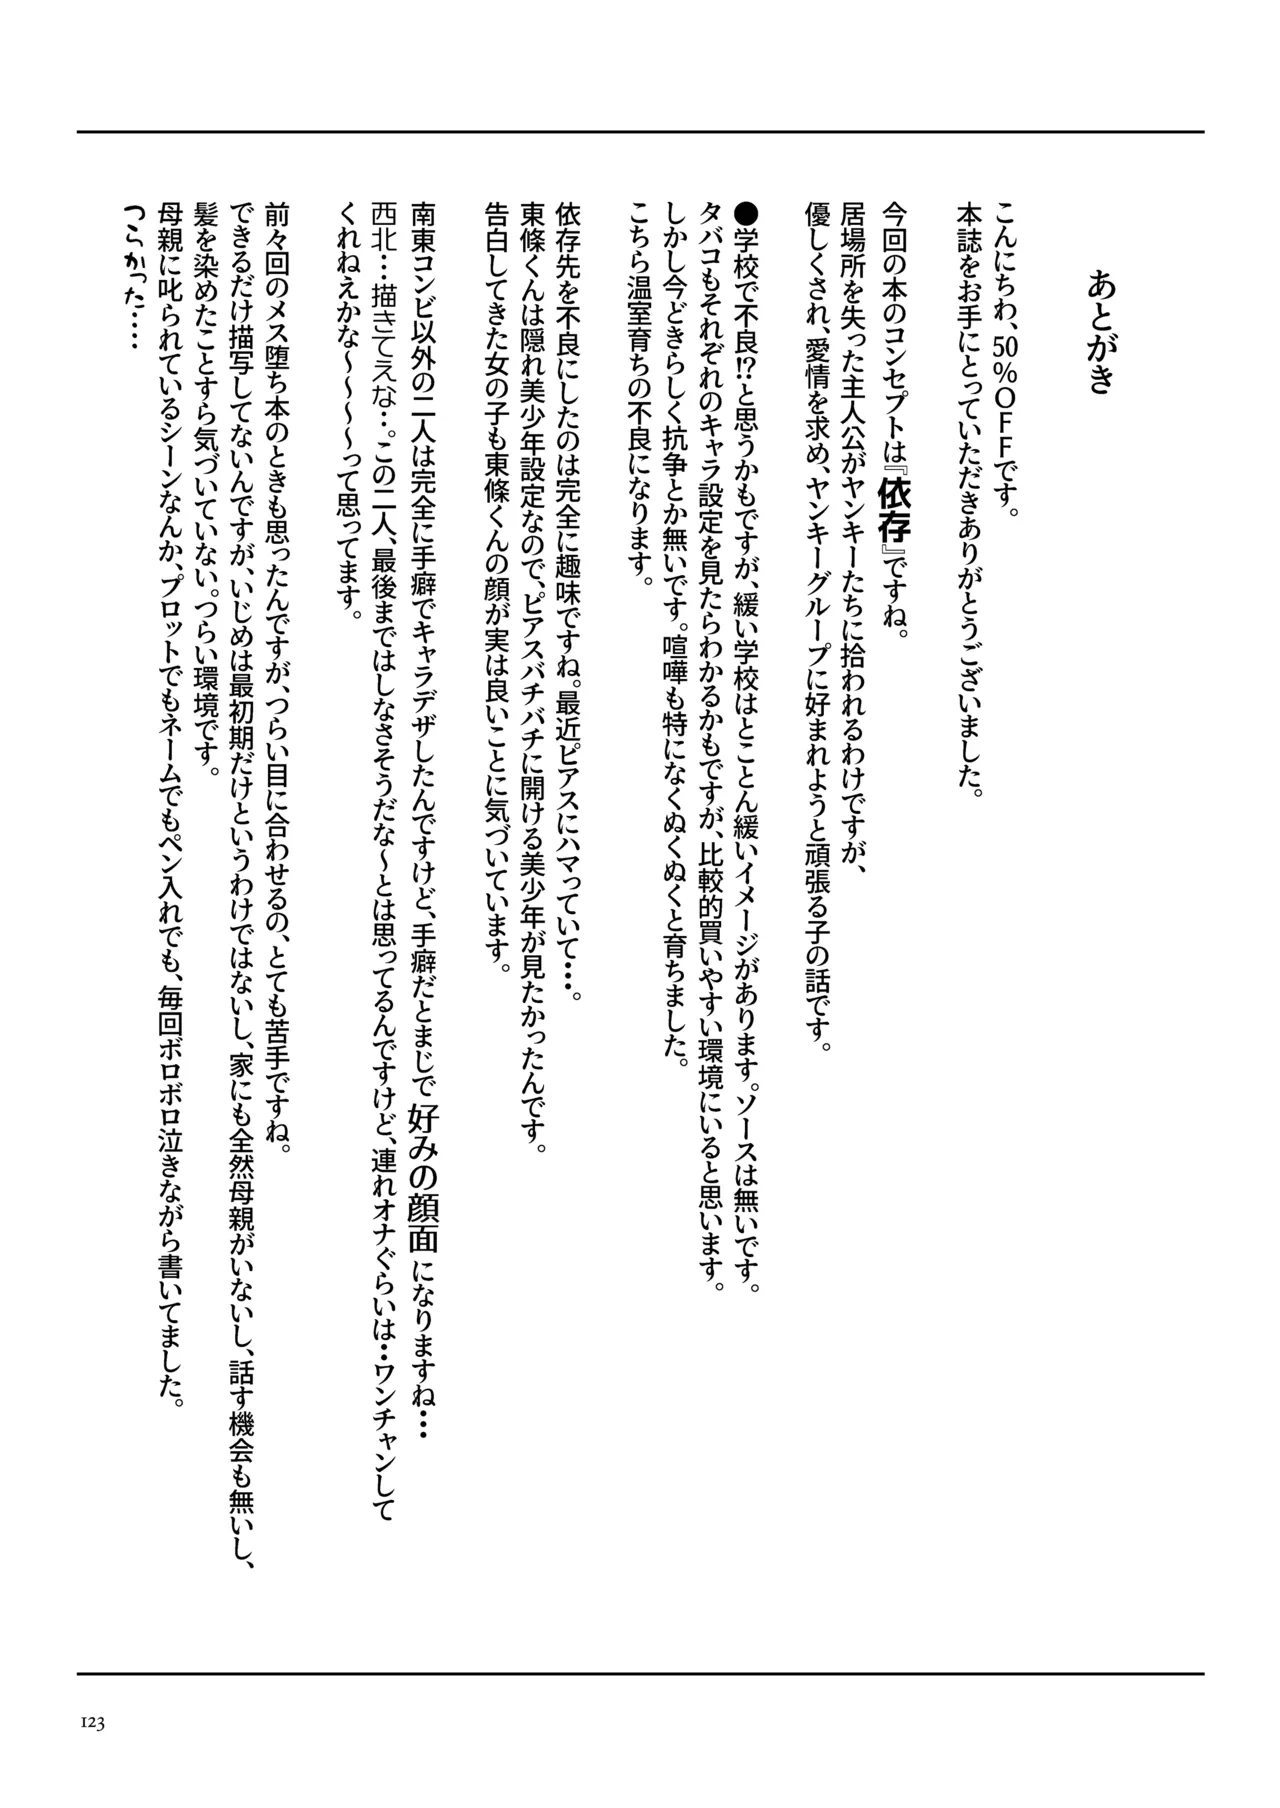 あとがき
こんにちわ、50%OFFです。
本誌をお手にとっていただきありがとうございました。
今回の本のコンセプトは『依存』ですね。
居場所を失った主人公がヤンキーたちに拾われるわけですが、
優しくされ、愛情を求め、ヤンキーグループに好まれようと頑張る子の話です。
●学校で不良!?と思うかもですが、緩い学校はとことん緩いイメージがあります。ソースは無いです。
タバコもそれぞれのキャラ設定を見たらわかるかもですが、比較的買いやすい環境にいると思います。
しかし今どきらしく抗争とか無いです。喧嘩も特になくぬくぬくと育ちました。
こちら温室育ちの不良になります。
依存先を不良にしたのは完全に趣味ですね。最近ピアスにハマっていて…。
東條くんは隠れ美少年設定なので、ピアスバチバチに開ける美少年が見たかったんです。
告白してきた女の子も東條くんの顔が実は良いことに気づいています。
南東コンビ以外の二人は完全に手癖でキャラデザしたんですけど、手癖だとまじで好みの顔面になりますね…
西北…描きてえな…。この二人、最後まではしなさそうだな～とは思ってるんですけど、連れオナぐらいは…ワンチャンして
くれねえかな～～～～って思ってます。
前々回のメス堕ち本のときも思ったんですが、つらい目に合わせるの、とても苦手ですね。
できるだけ描写してないんですが、いじめは最初期だけというわけではないし、家にも全然母親がいないし、話す機会も無いし、
髪を染めたことすら気づいていない。つらい環境です。
母親に叱られているシーンなんか、プロットでもネームでもペン入れでも、毎回ボロボロ泣きながら書いてました。
つらかった……
123